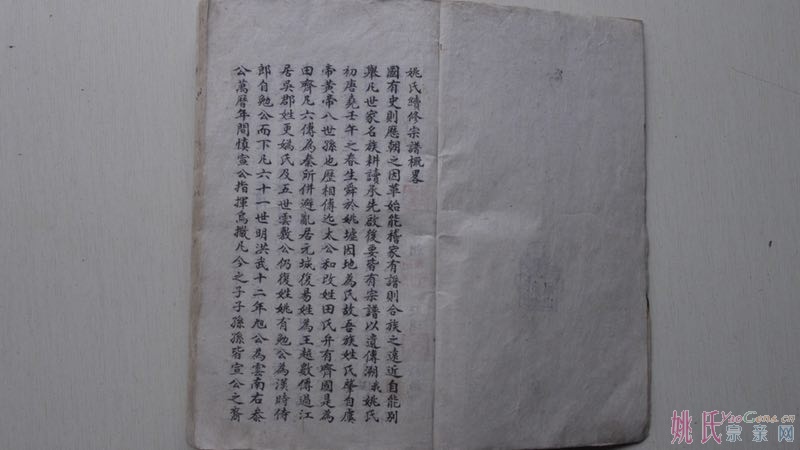 姚氏續修宗譜概畧
國有史則歷朝之因革始能稽家有譜則合族之遠近自能別
舉凡世家名族耕讀承先啟後要皆有宗譜以遺傳溯我姚氏
初唐堯壬午之春生舜於姚墟因地為氏故吾族姓氏肇自虞
帝黃帝八世孫也歷相傳迄太公和改姓田氏并有齊國是為
田齊凡六傳為秦所併避亂居元城復易姓為王越數傳過江
居吳郡姓更媯氏及五世雲敷公仍復姓姚有勉公為漢時侍
郎自勉公而下凡六十一世明洪武十二年旭公為雲南右叅
公萬曆年間慎宣公指揮烏撒凡今之子子孫孫皆宣公之裔
姚氏宗亲网
YaoGens.cn